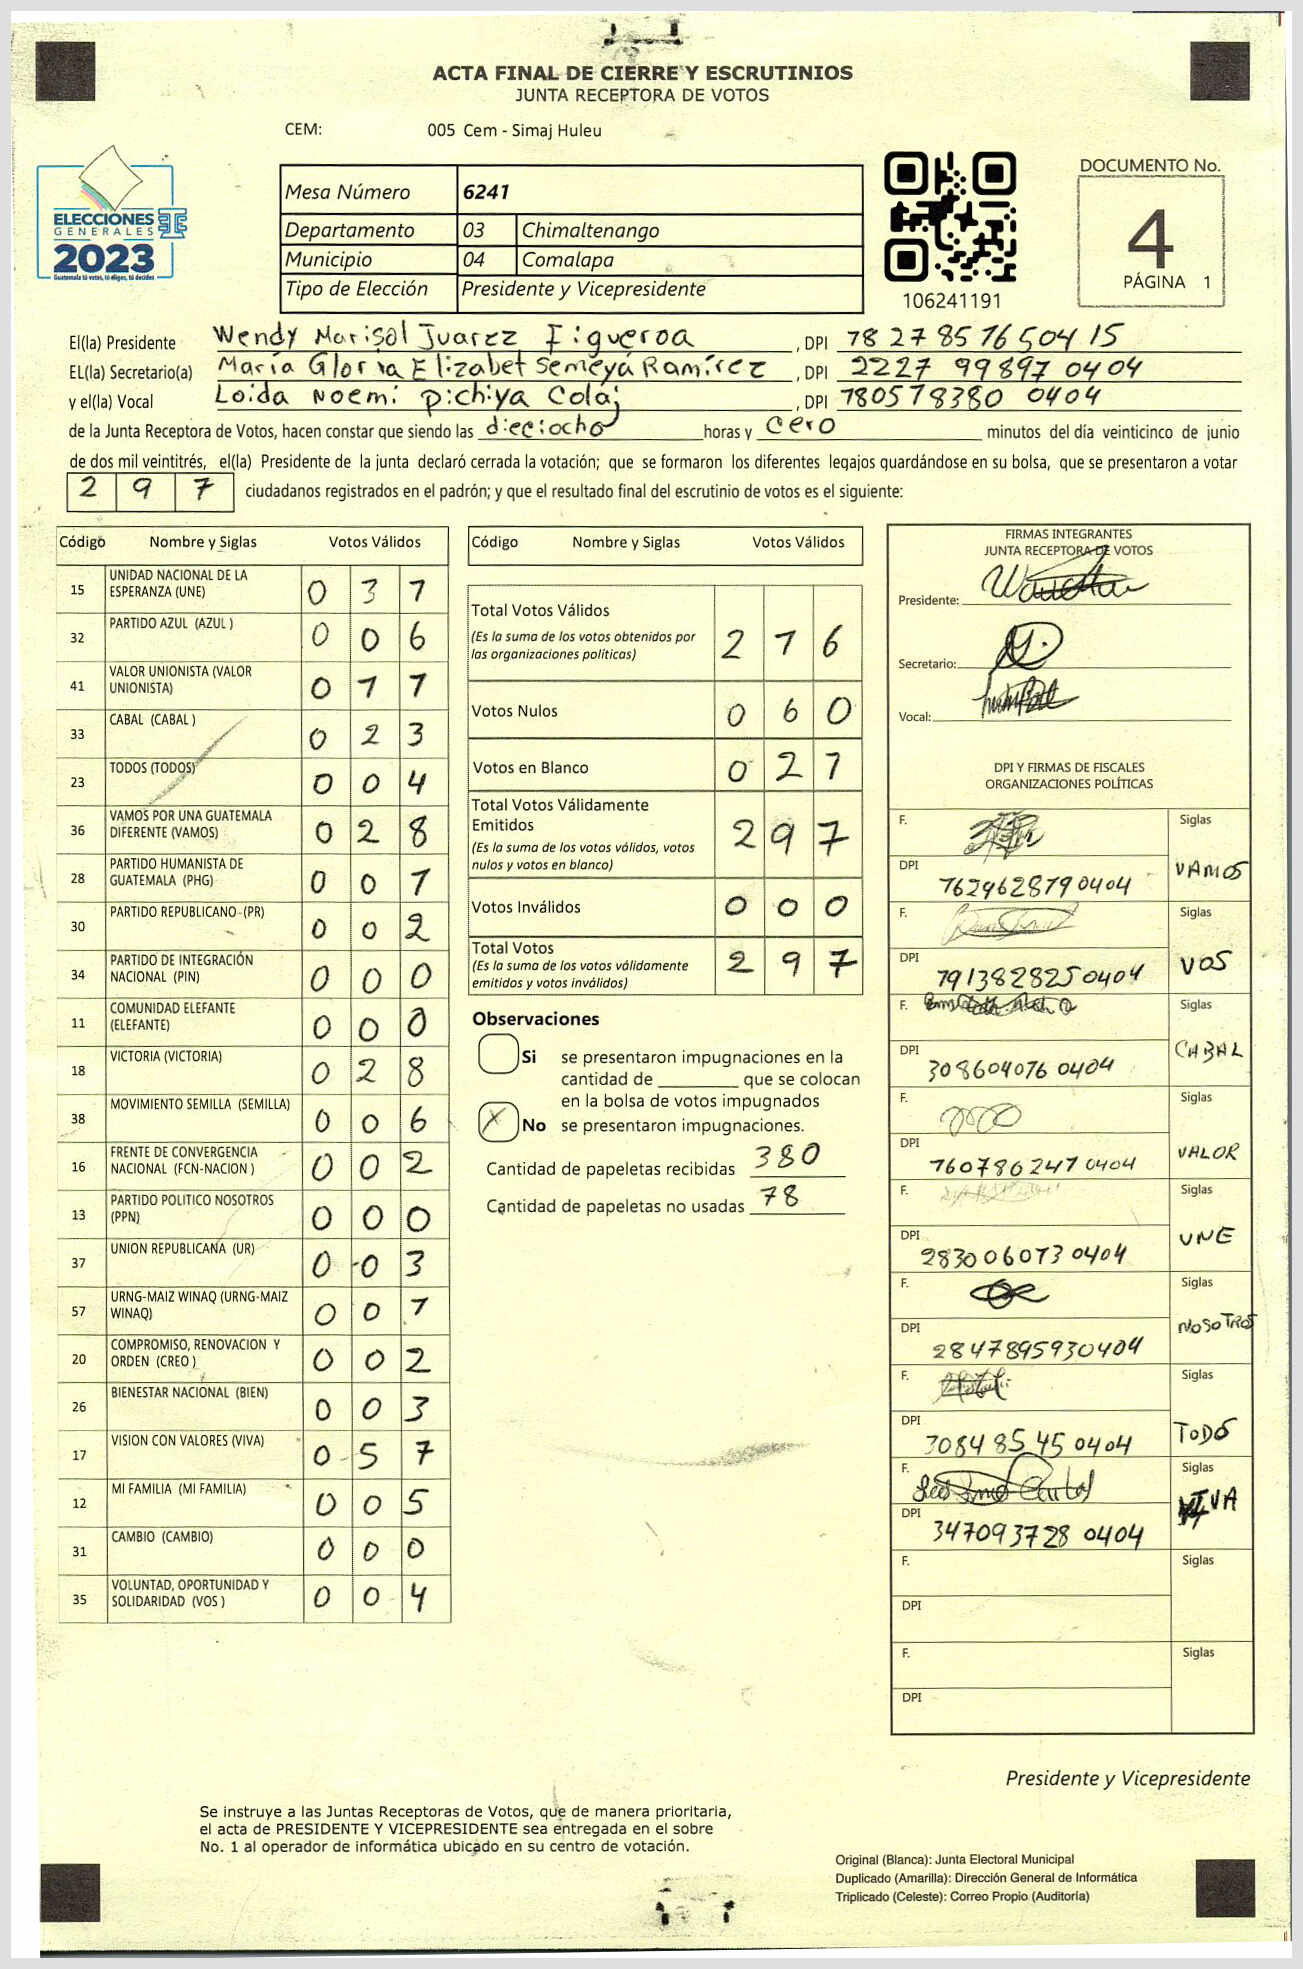 ACTA FINAL DE CIERRE Y ESCRUTINIOS
JUNTA RECEPTORA DE VOTOS
CEM: 005 Cem - Simaj Huleu
ELECCIONES
GENERALES
2023
Guatemala tú votas, tú eliges, tú decides
Mesa Número 6241
Departamento 03 Chimaltenango
Municipio 04 Comalapa
Tipo de Elección Presidente y Vicepresidente
106241191
DOCUMENTO No.
4
PÁGINA 1
El(la) Presidente Wendy Marisol Juarez Figueroa, DPI 78 278576504 15
EL(la) Secretario(a) María Gloria Elizabet Semeyá Ramírez, DPI 2227 99897 0404
y el(la) Vocal Loida Noemi Pichiya Colaj, DPI 780578380 0404
de la Junta Receptora de Votos, hacen constar que siendo las dieciocho horas y cero minutos del día veinticinco de junio
de dos mil veintitrés, el(la) Presidente de la junta declaró cerrada la votación; que se formaron los diferentes legajos quardándose en su bolsa, que se presentaron a votar
2 9 7 ciudadanos registrados en el padrón; y que el resultado final del escrutinio de votos es el siguiente:
Código Nombre y Siglas Votos Válidos
15 UNIDAD NACIONAL DE LA ESPERANZA (UNE) 0 3 7
32 PARTIDO AZUL (AZUL ) 0 0 6
41 VALOR UNIONISTA (VALOR UNIONISTA) 0 7 7
33 CABAL (CABAL ) 0 2 3
23 TODOS (TODOS) 0 0 4
36 VAMOS POR UNA GUATEMALA DIFERENTE (VAMOS) 0 2 8
28 PARTIDO HUMANISTA DE GUATEMALA (PHG) 0 0 1
30 PARTIDO REPUBLICANO (PR) 0 0 2
34 PARTIDO DE INTEGRACIÓN NACIONAL (PIN) 0 0 0
11 COMUNIDAD ELEFANTE (ELEFANTE) 0 0 0
18 VICTORIA (VICTORIA) 0 2 8
38 MOVIMIENTO SEMILLA (SEMILLA) 0 0 6
16 FRENTE DE CONVERGENCIA NACIONAL (FCN-NACION ) 0 0 2
13 PARTIDO POLITICO NOSOTROS (PPN) 0 0 0
37 UNION REPUBLICANA (UR) 0 0 3
57 URNG-MAIZ WINAQ (URNG-MAIZ WINAQ) 0 0 1
20 COMPROMISO, RENOVACION Y ORDEN (CREO ) 0 0 2
26 BIENESTAR NACIONAL (BIEN) 0 0 3
17 VISION CON VALORES (VIVA) 0 5 7
12 MI FAMILIA (MI FAMILIA) 0 0 5
31 CAMBIO (CAMBIO) 0 0 0
35 VOLUNTAD, OPORTUNIDAD Y SOLIDARIDAD (VOS ) 0 0 4
Código Nombre y Siglas Votos Válidos
Total Votos Válidos 2 7 6
(Es la suma de los votos obtenidos por
las organizaciones políticas)
Votos Nulos 0 6 0
Votos en Blanco 0 2 7
Total Votos Válidamente
Emitidos 2 9 7
(Es la suma de los votos válidos, votos
nulos y votos en blanco)
Votos Inválidos 0 0 0
Total Votos 2 9 7
(Es la suma de los votos válidamente
emitidos y votos inválidos)
Observaciones
Si se presentaron impugnaciones en la
cantidad de ________ que se colocan
en la bolsa de votos impugnados
X No se presentaron impugnaciones.
Cantidad de papeletas recibidas 380
Cantidad de papeletas no usadas 78
FIRMAS INTEGRANTES
JUNTA RECEPTORA DE VOTOS
Presidente:
Secretario:
Vocal:
DPI Y FIRMAS DE FISCALES
ORGANIZACIONES POLÍTICAS
F. Siglas
DPI 762962879 0404 VAMOS
F. Siglas
DPI 791382825 0404 VOS
F. Siglas
DPI 308604076 0404 CABAL
F. Siglas
DPI 760786247 0404 VALOR
F. Siglas
DPI 283006073 0404 UNE
F. Siglas
DPI 284789593 0404 NOSOTROS
F. Siglas
DPI 3084 85 45 0404 TODOS
F. Siglas
DPI 347093728 0404 VIVA
F. Siglas
DPI
F. Siglas
DPI
Presidente y Vicepresidente
Se instruye a las Juntas Receptoras de Votos, que de manera prioritaria,
el acta de PRESIDENTE Y VICEPRESIDENTE sea entregada en el sobre
No. 1 al operador de informática ubicado en su centro de votación.
Original (Blanca): Junta Electoral Municipal
Duplicado (Amarilla): Dirección General de Informática
Triplicado (Celeste): Correo Propio (Auditoría)